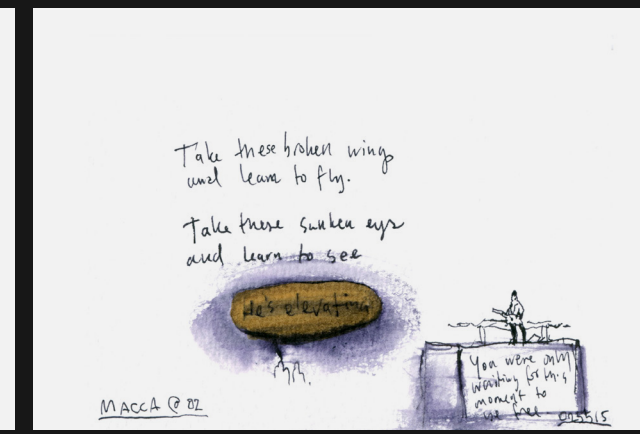 Take these broken wings
and learn to fly.
Take these sunken eyes
and learn to see
He's elevating
You were only
waiting for this
moment to
be free
MACCA @ 02